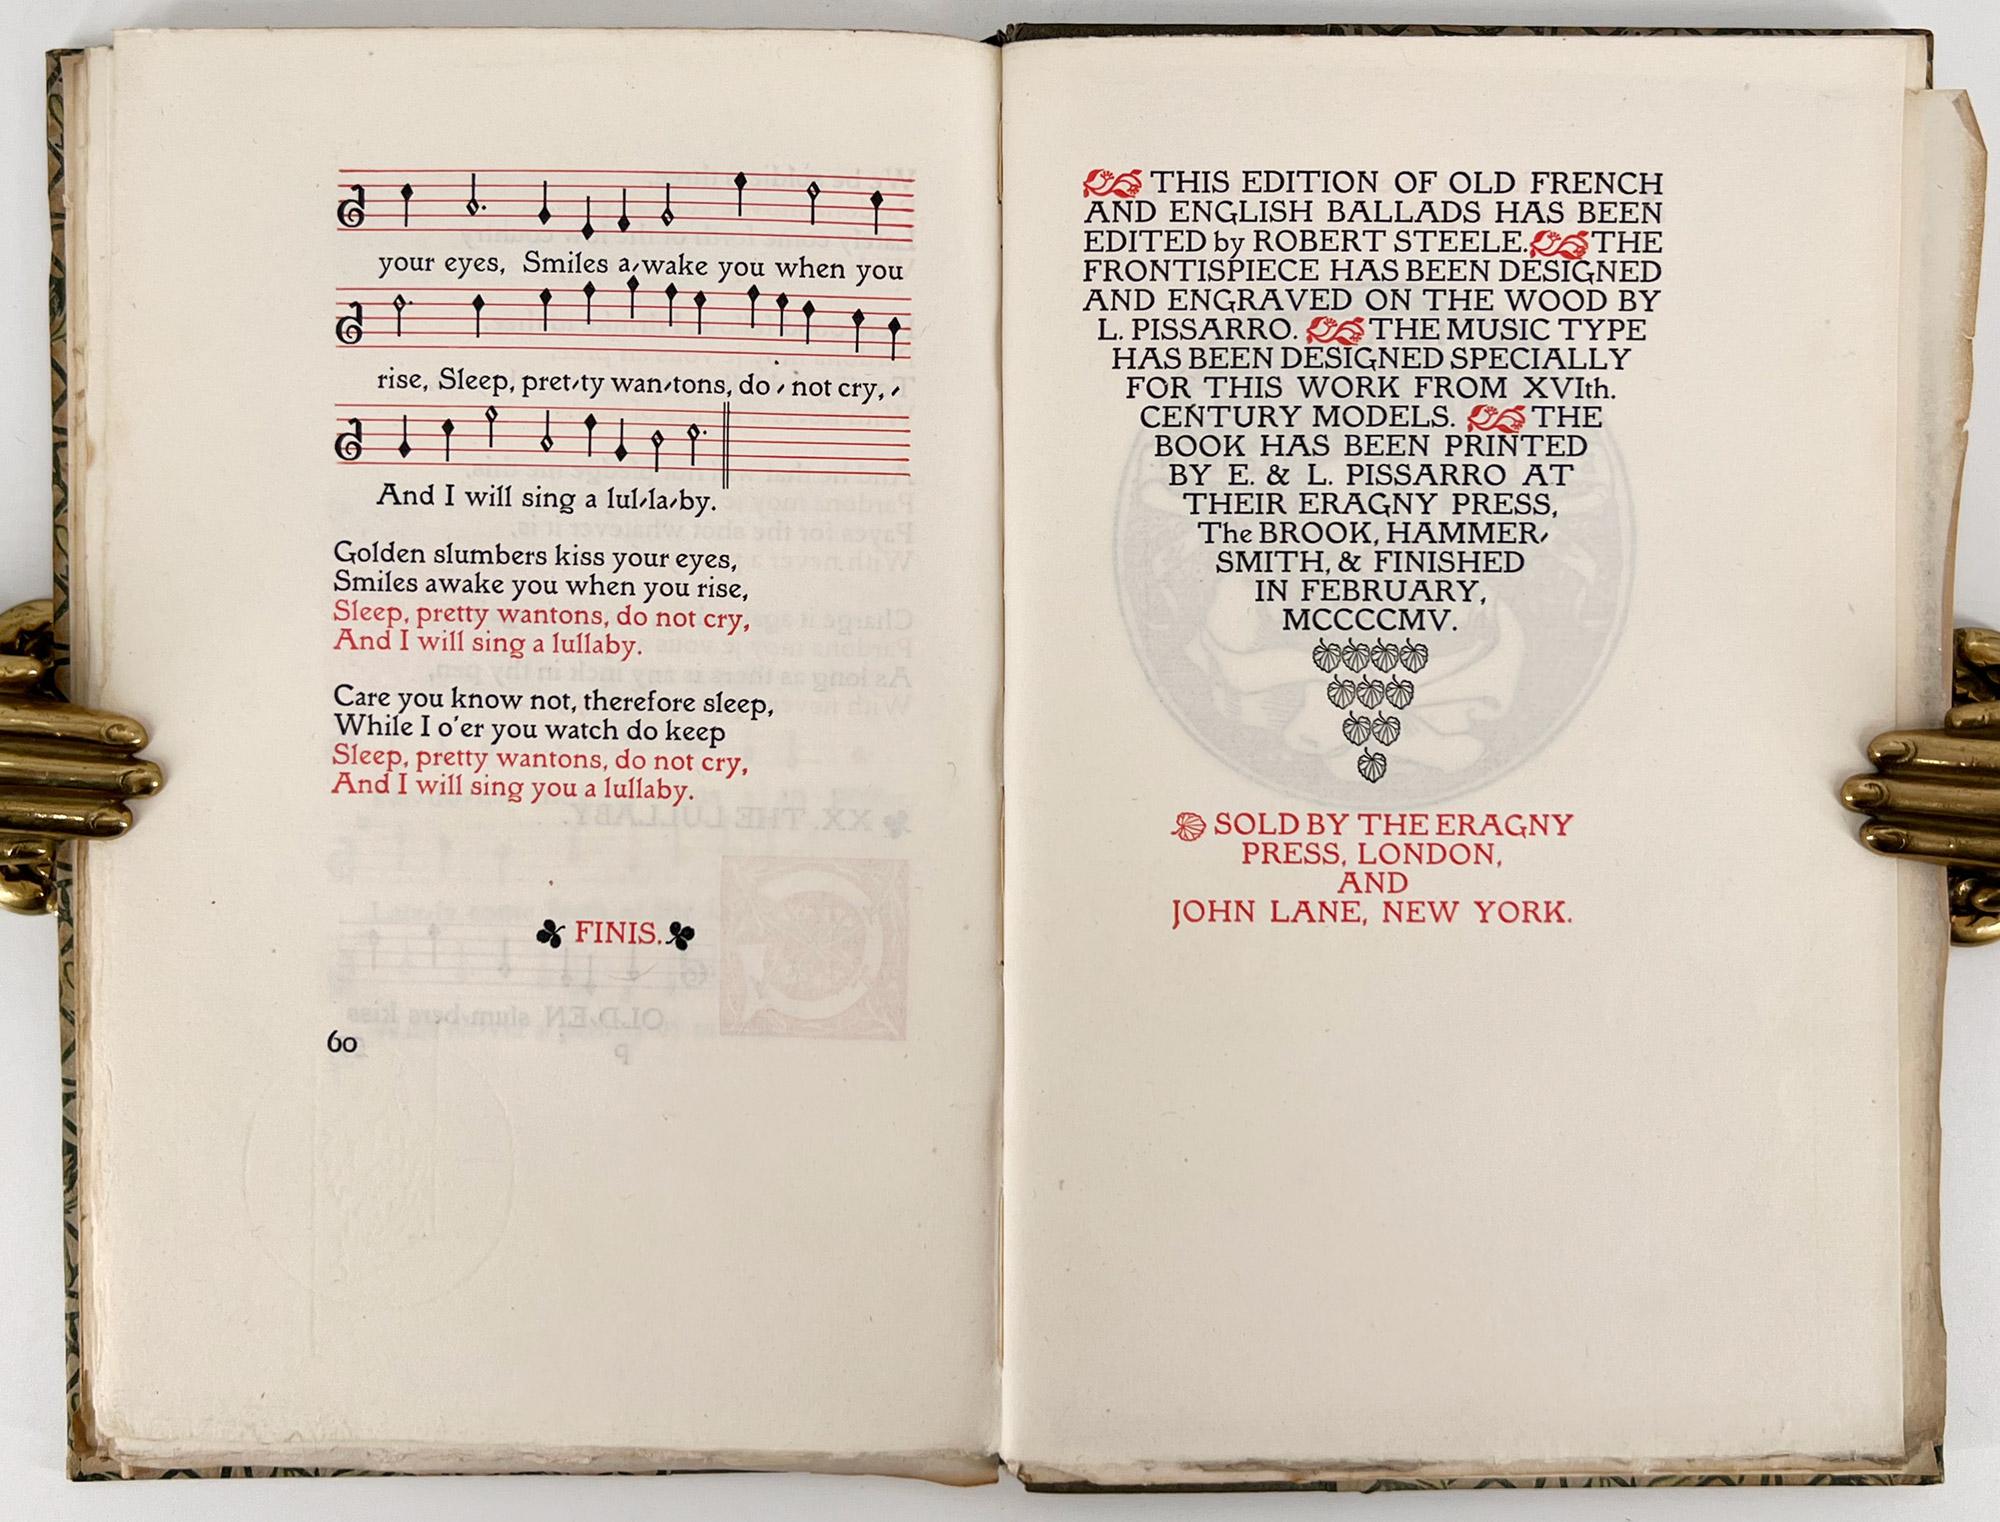 your eyes, Smiles a-wake you when you
rise, Sleep, pret-ty wan-tons, do - not cry, -
And I will sing a lul-la-by.
Golden slumbers kiss your eyes,
Smiles awake you when you rise,
Sleep, pretty wantons, do not cry,
And I will sing a lullaby.
Care you know not, therefore sleep,
While I o'er you watch do keep
Sleep, pretty wantons, do not cry,
And I will sing you a lullaby.
FINIS.
60
THIS EDITION OF OLD FRENCH
AND ENGLISH BALLADS HAS BEEN
EDITED by ROBERT STEELE. THE
FRONTISPIECE HAS BEEN DESIGNED
AND ENGRAVED ON THE WOOD BY
L. PISSARRO. THE MUSIC TYPE
HAS BEEN DESIGNED SPECIALLY
FOR THIS WORK FROM XVIth.
CENTURY MODELS. THE
BOOK HAS BEEN PRINTED
BY E. & L. PISSARRO AT
THEIR ERAGNY PRESS,
The BROOK, HAMMER-
SMITH, & FINISHED
IN FEBRUARY,
MCCCCMV.
SOLD BY THE ERAGNY
PRESS, LONDON,
AND
JOHN LANE, NEW YORK.